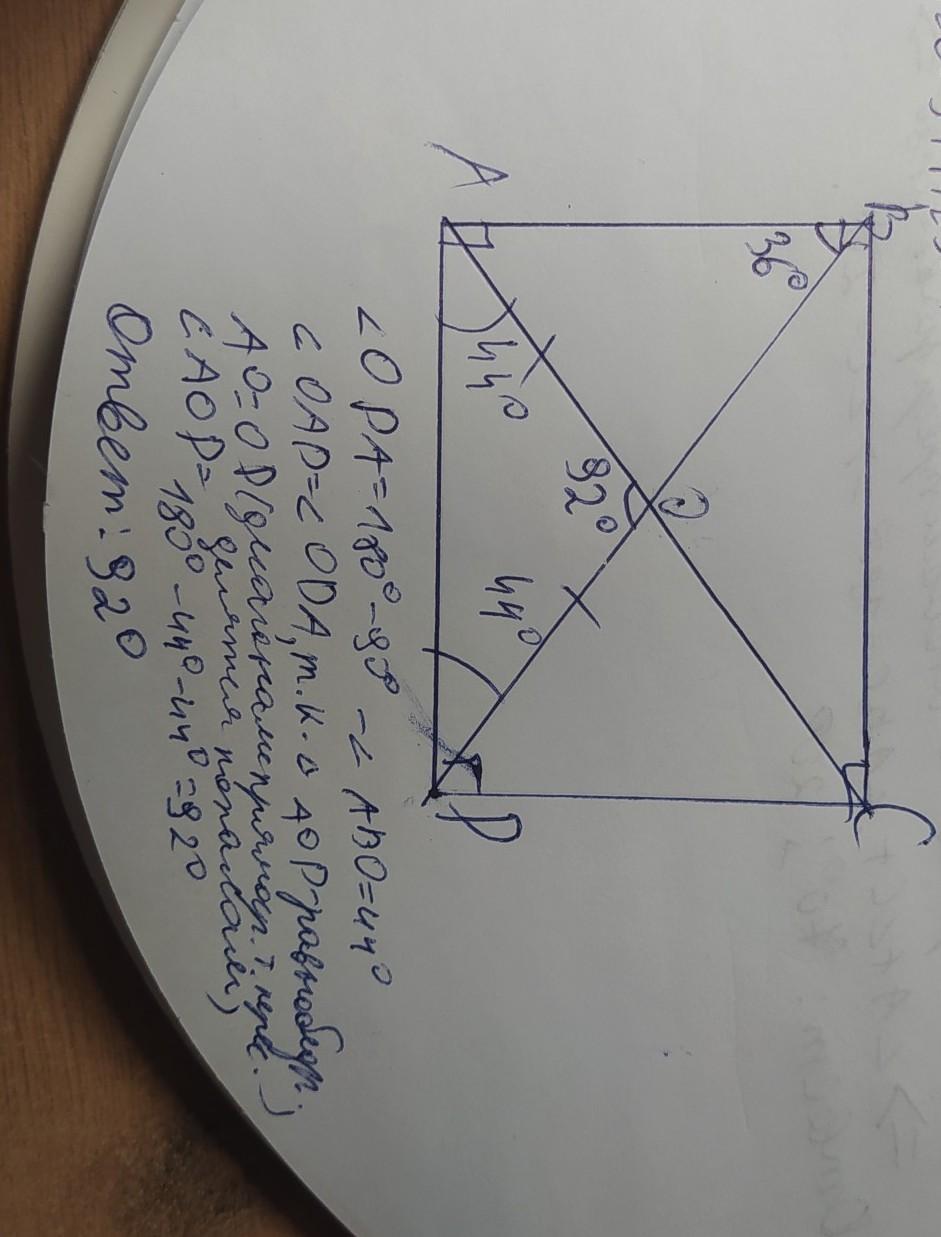 B
C
36°
O
92°
44°
44°
A
D
∠ODA=180°-90°-∠ABO=44°
∠OAD=∠ODA, т.к. △ AOD-равнобедр.
AO=OD(диагонали прямоуг. т. перес.
делятся пополам)
∠AOD=
180°-44°-44°=92°
Ответ: 92°